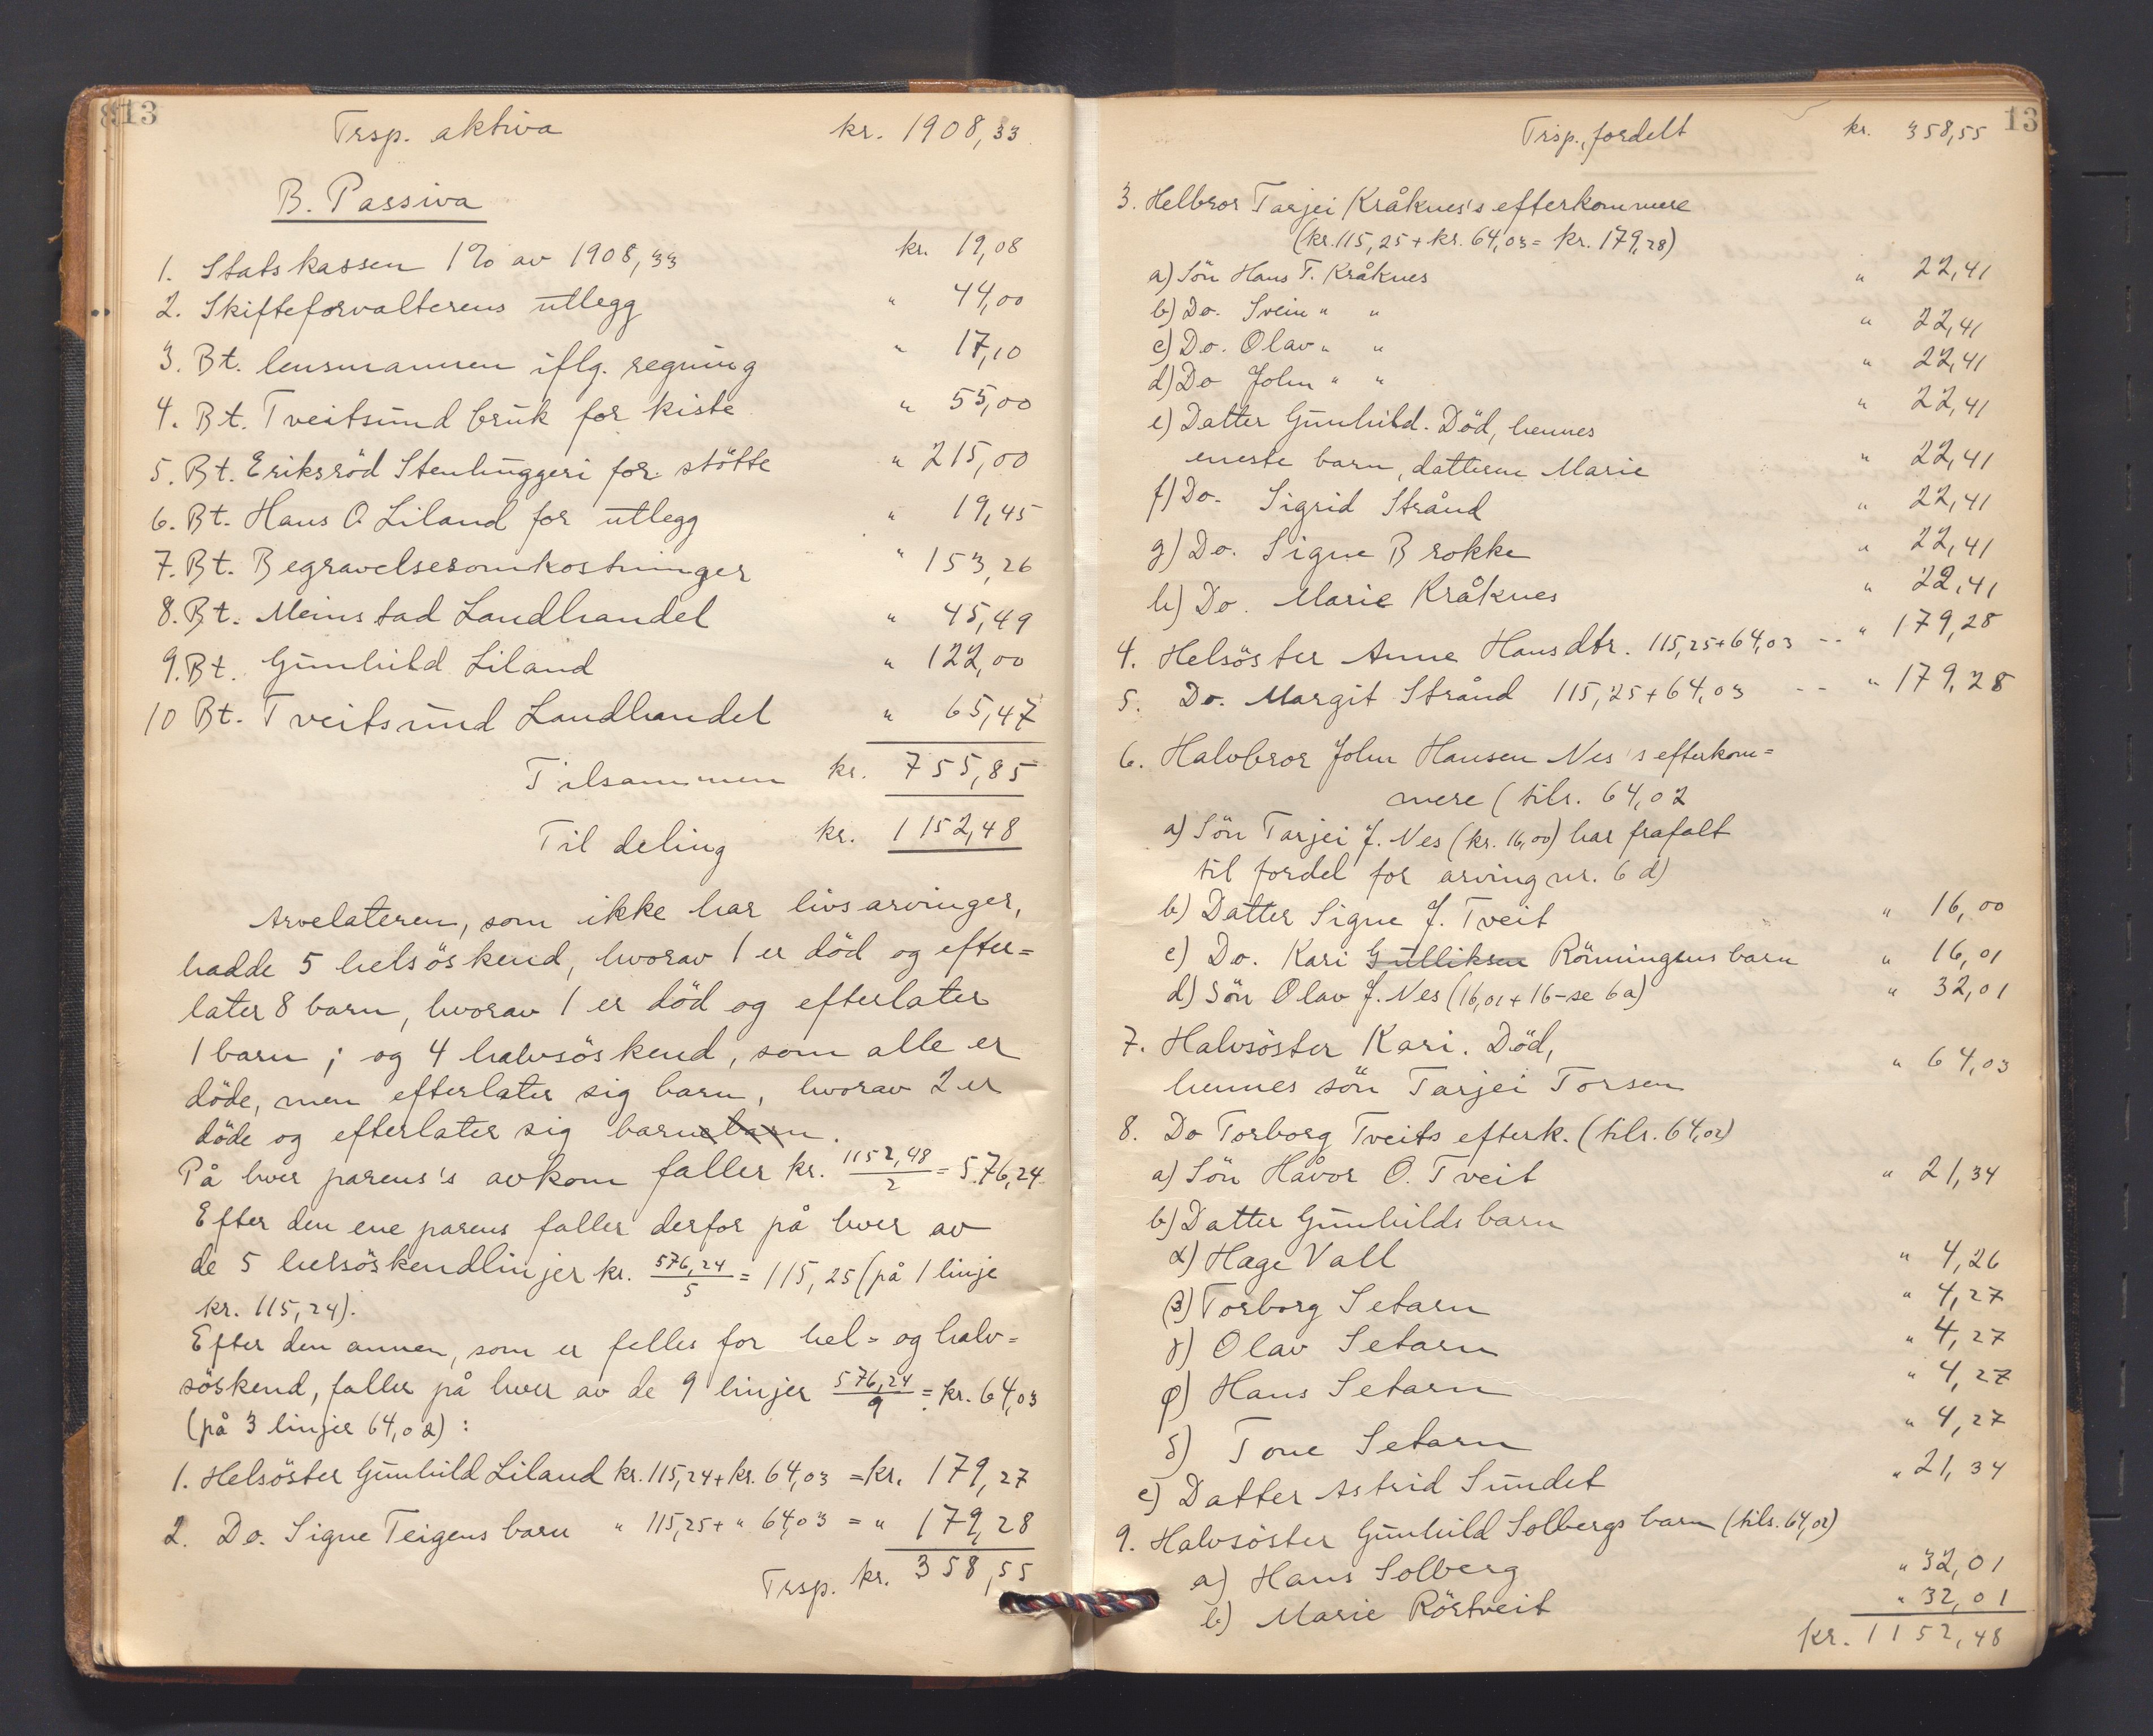 813
Trsp. aktiva kr. 1908,33
B. Passiva
1. Statskassen 1% av 1908,33 kr. 19,08
2. Skifteforvalterens utlegg " 44,00
3. Bt. lensmannen iflg. regning " 17,10
4. Bt. Tveitsund bruk for kiste " 55,00
5. Bt. Eriksröd Stenhuggeri for stötte " 215,00
6. Bt. Hans O. Liland for utlegg " 19,45
7. Bt. Begravelsesomkostninger " 153,26
8. Bt. Meinstad Landhandel " 45,49
9. Bt. Gunhild Liland " 122,00
10 Bt. Tveitsund Landhandel " 65,47
Tilsammen kr. 755,85
Til deling kr. 1152,48
Arvelateren, som ikke har livsarvinger,
hadde 5 helsöskend, hvorav 1 er död og efter=
later 8 barn, hvorav 1 er död og efterlater
1 barn; og 4 halvsöskend, som alle er
döde, men efterlater sig barn, hvorav 2 er
döde og efterlater sig barnebarn.
På hver parens's avkom faller kr. 1152,48/2 = 576,24
Efter den ene parens faller derfor på hver av
de 5 helsöskendlinjer kr. 576,24/5 = 115,25 (på 1 linje
kr. 115,24).
Efter den annen, som er felles for hel- og halv=
söskend, faller på hver av de 9 linjer 576,24/9 = kr. 64,03
(på 3 linjer 64,02):
1. Helsöster Gunhild Liland kr. 115,24 + kr. 64,03 = kr. 179,27
2. Do. Signe Teigens barn " 115,25 + " 64,03 = " 179,28
Trsp. kr. 358,55
13
Trsp., fordelt kr. 358,55
3. Helbror Tarjei Kråknes's efterkommere
(kr. 115,25 + kr. 64,03 = kr. 179,28)
a) Sön Hans T. Kråknes " 22,41
b) Do. Svein " " " 22,41
c) Do. Olav " " " 22,41
d) Do John " " " 22,41
e) Datter Gunhild. Död, hennes
eneste barn, datteren Marie " 22,41
f) Do. Sigrid Strånd " 22,41
g) Do. Signe Brokke " 22,41
h) Do. Marie Kråknes " 22,41
4. Helsöster Anne Hansdtr. 115,25 + 64,03 -- " 179,28
5. Do. Margit Strånd 115,25 + 64,03 -- " 179,28
6. Halvbror John Hansen Nes's efterkom=
mere (tils. 64,02
a) Sön Tarjei J. Nes (kr. 16,00) har frafalt
til fordel for arving nr. 6 d)
b) Datter Signe J. Tveit " 16,00
c) Do. Kari Gulliksen Rönningens barn " 16,01
d) Sön Olav J. Nes (16,01 + 16 - se 6a) " 32,01
7. Halvsöster Kari. Död,
hennes sön Tarjei Torsen " 64,03
8. Do Torborg Tveits efterk. (tils. 64,02)
a) Sön Håvor O. Tveit " 21,34
b) Datter Gunhilds barn
α) Hæge Vall " 4,26
β) Torborg Setarn " 4,27
γ) Olav Setarn " 4,27
φ) Hans Setarn " 4,27
δ) Tone Setarn " 4,27
c) Datter Astrid Sundet " 21,34
9. Halvsöster Gunhild Solbergs barn (tils. 64,02)
a) Hans Solberg " 32,01
b) Marie Rörtveit " 32,01
kr. 1152,48